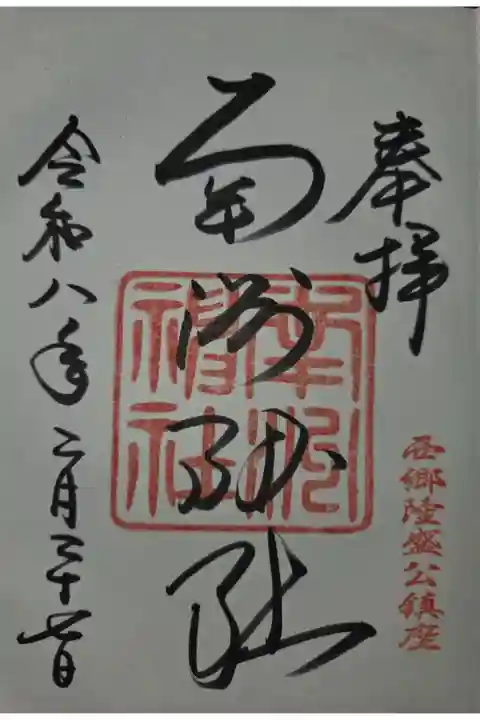 奉拝
西郷隆盛公鎮座
南洲神社
南洲神社
令和八年二月二十七日